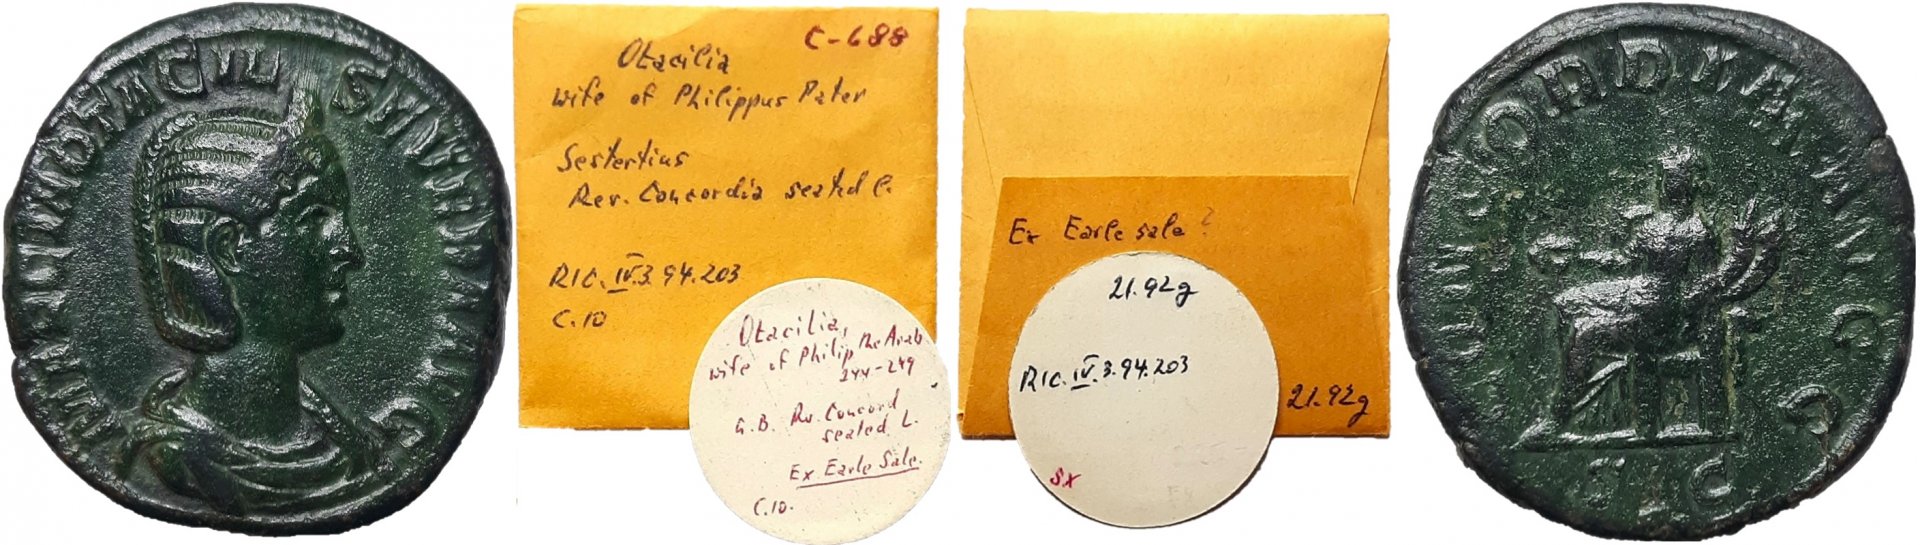 MARCIA OTACIL SEVERA AVG
C-688
Otacilia
wife of Philippus Pater
Sestertius
Rev. Concordia seated l.
RIC. IV.3.94.203
C.10
Otacilia,
wife of Philip the Arab
244-249
G.B. Rv. Concord
seated L.
Ex Earle Sale.
C.10.
Ex Earle sale?
21.92g
RIC. IV.3.94.203
21.92g
SX
CONCORDIA AVGG
S C